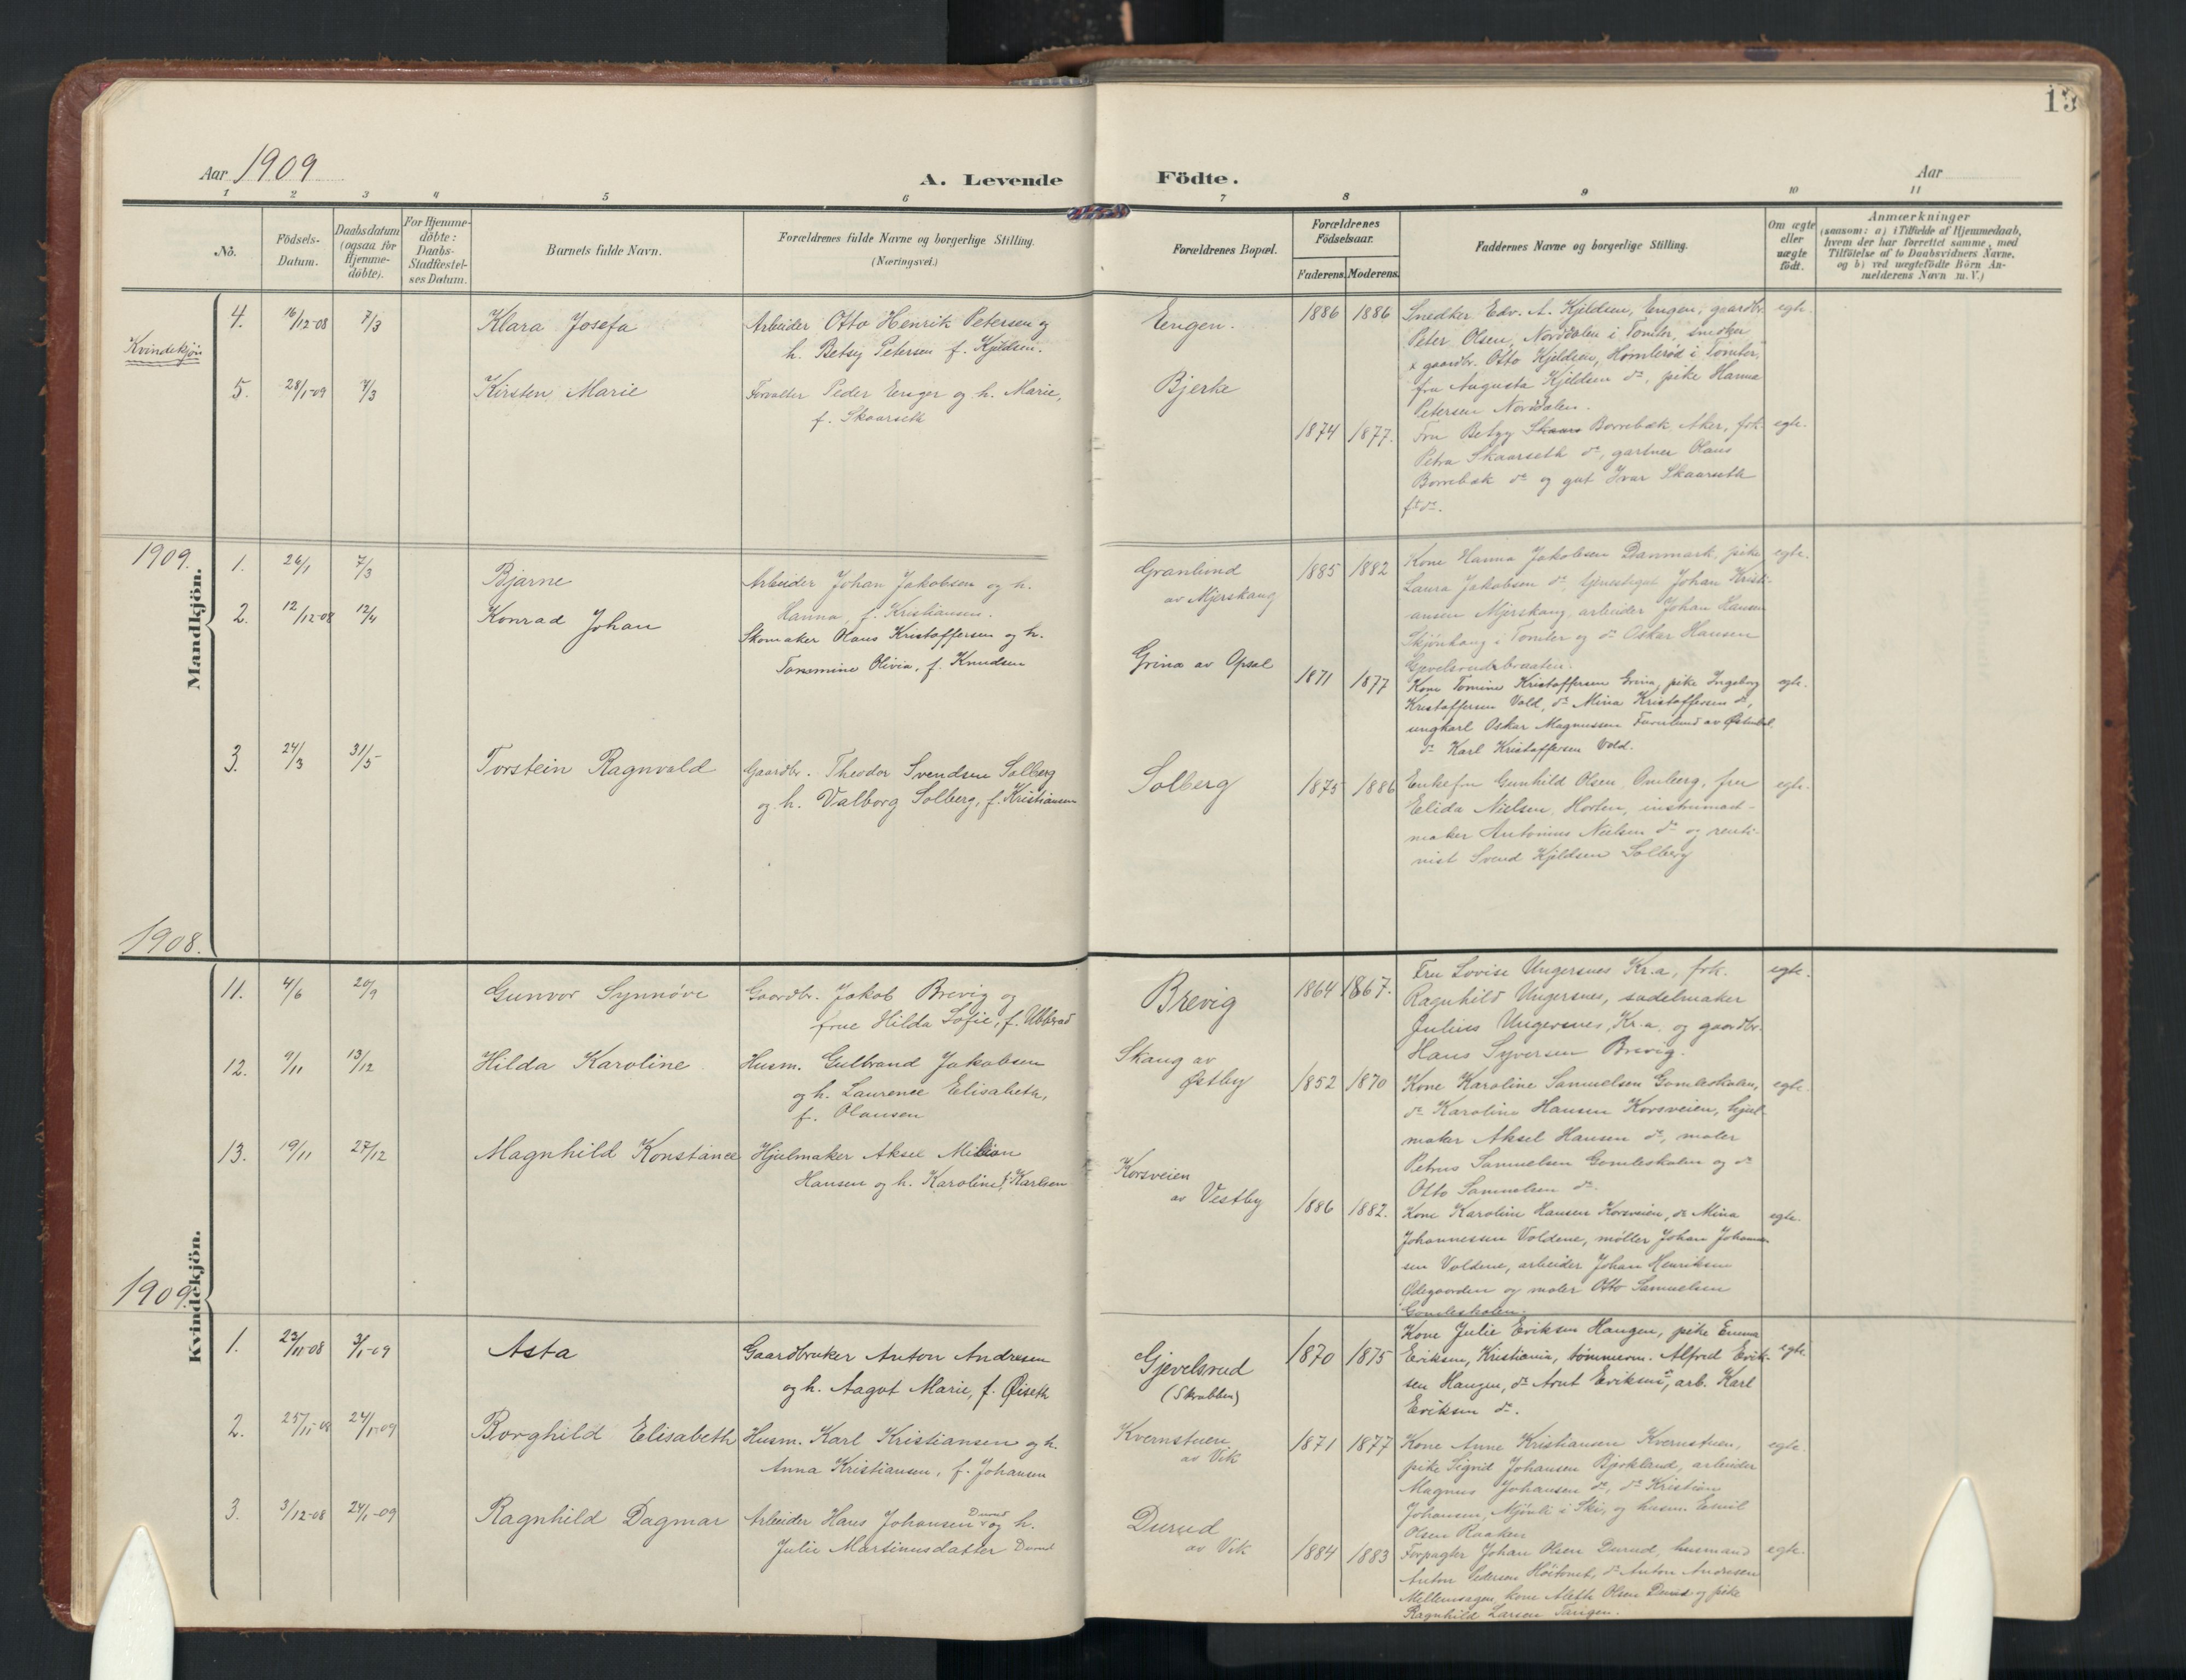 13
Aar 1909
A. Levende Födte.
Aar
1 2 3 4 5 6 7 8 9 10 11
No.
Födsels-Datum.
Daabsdatum (ogsaa for Hjemme-döbte).
For Hjemme-döbte: Daabs-Stadfæstel-ses Datum.
Barnets fulde Navn.
Forældrenes fulde Navne og borgerlige Stilling.
(Næringsvei.)
Forældrenes Bopæl.
Forældrenes Födselsaar.
Faderens. Moderens.
Faddernes Navne og borgerlige Stilling.
Om ægte eller uægte födt.
Anmærkninger
(saasom: a) i Tilfælde af Hjemmedaab,
hvem der har forrettet samme, med
Tilföielse af to Daabsvidners Navne,
og b) ved uægtefödte Börn An-
melderens Navn m. V.)
Kvindekjön
4. 16/12-08 7/3 Klara Josefa
Arbeider Otto Henrik Petersen og
h. Betsy Petersen f. Kjeldsen.
Engen.
1886 1886
Snedker Edv. A. Kjeldsen, Engen, gaardbr.
Peter Olsen, Norddalen i Tomter, snedker
& gaardbr. Otto Kjeldsen, Homlerød i Tomter,
fru Augusta Kjeldsen do, pike Hanna
Petersen Norddalen.
egte.
5. 28/1-09 7/3 Kirsten Marie
Forvalter Peder Enger og h. Marie,
f. Skaarseth
Bjerke
1874 1877.
Fru Betzy Skaars Borrebæk Aker, frk.
Petra Skaarseth do, gartner Olaus
Borrebæk do og gut Ivar Skaarseth
do.
egte.
1909.
Mandkjön.
1. 26/1 7/3 Bjarne
Arbeider Johan Jakobsen og h.
Hanna, f. Kristiansen.
Granlund
av Mjerskaug
1885 1882
Kone Hanna Jakobsen Danmark, pike
Laura Jakobsen do, Johan Kristi-
ansen Mjerskaug, arbeider Johan Hansen
Skjønhaug i Tomter og do Oskar Hansen
Gjevelsrudsbraaten.
egte.
2. 12/12-08 12/4 Konrad Johan
Skomaker Olaus Kristoffersen og h.
Tonemine Olivia, f. Knudsen
Grina av Opsal
1871 1877
Kone Tomine Kristoffersen Grina, pike Ingeborg
Kristoffersen Vold, do Mina Kristoffersen do,
ungkarl Oskar Magnussen Furulund av
do Karl Kristoffersen Vold.
egte.
3. 24/3 31/5 Torstein Ragnvald
Gaardbr. Theodor Svendsen Solberg
og h. Valborg Solberg, f. Kristiansen
Solberg
1875 1886
Enkefru Gunhild Olsen, Omberg, fru
Elida Nielsen, Horten, instrument-
maker Antonius Nielsen do og renti-
nist Svend Kjeldsen Solberg
egte.
1908.
Kvindekjön.
11. 4/6 20/9 Gunvor Synnöve
Gaardbr. Jakob Brevig og
frue Hilda Sofie, f. Ubberud
Brevig
1864 1867.
Fru Lovise Ungersnes Kr.a, frk.
Ragnhild Ungersnes, sadelmaker
Julius Ungersnes, Kr.a. og gaardbr.
Hans Syversen Brevig.
egte.
12. 9/11 13/12 Hilda Karoline
Husm. Gulbrand Jakobsen
og h. Laurence Elisabeth,
f. Olausen
Skaug av
Østby
1852 1870
Kone Karoline Samuelsen Gomleskolen,
do Karoline Hansen Korsveien, hjul-
maker Aksel Hansen do, maler
Petrus Samuelsen Gomleskolen og do
Otto Samuelsen do.
egte.
13. 19/11 27/12 Magnhild Konstance
Hjulmaker Aksel Milian
Hansen og h. Karoline f. Karlsen
Korsveien
av Vestby
1886 1882.
Kone Karoline Hansen Korsveien, do Mina
Johannessen Voldene, møller Johan Johannes-
sen Voldene, arbeider Johan Henriksen
Ødegaarden og maler Otto Samuelsen
Gomleskolen.
egte.
1909
1. 23/11-08 3/1-09 Asta
Gaardbruker Anton Andresen
og h. Aagot Marie, f. Øiseth
Gjevelsrud
(Skrabben)
1870 1875
Kone Julie Eriksen Haugen, pike Emma
Eriksen, Kristiania, tømmerm. Alfred Erik-
sen Haugen, do Arnt Eriksen do, arb. Karl
Eriksen do.
egte
2. 25/11-08 24/1-09 Borghild Elisabeth
Husm. Karl Kristiansen og h.
Anna Kristiansen, f. Johansen
Kvernstuen
av Vik
1871 1877
Kone Anne Kristiansen Kvernstuen,
pike Sigrid Johansen Bjerkland, arbeider
Magnus Johansen do, do Kristian
Johansen, Mjönli i Ski, og husm. Emil
Olsen Raaken
egte.
3. 3/12-08 24/1-09 Ragnhild Dagmar
Arbeider Hans Johansen Durud og h.
Julie Martinusdatter Durud
Durud
av Vik
1884 1883
Forpagter Johan Olsen Durud, husmand
Anton Pedersen Høitomt, do Anton Andresen
Mellemsagen, kone Aleth Olsen Durud og pike
Ragnhild Larsen Tangen.
egte.